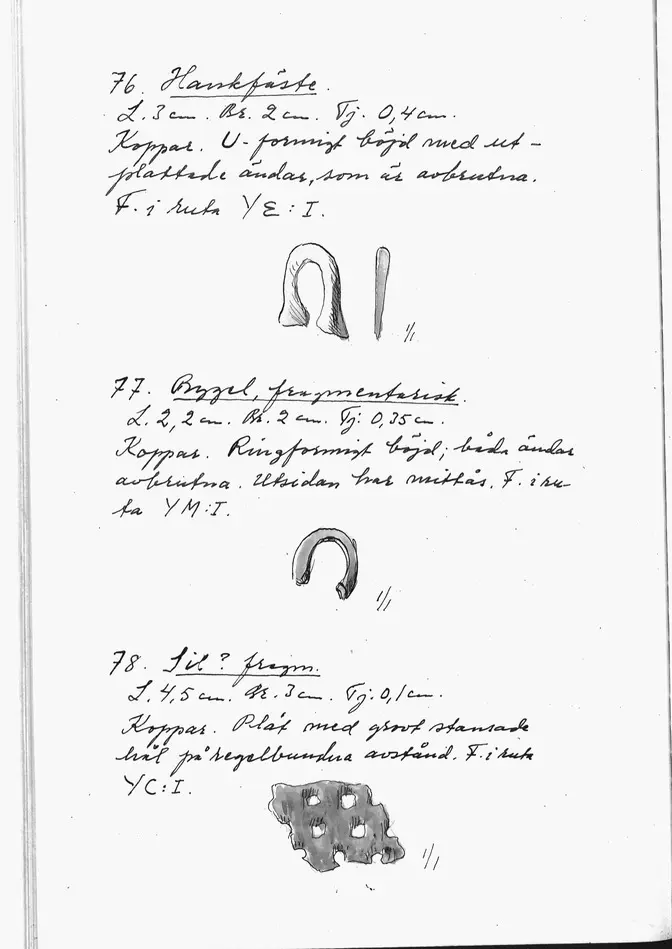 76. Hankfäste.
L. 3 cm. Br. 2 cm. Tj. 0,4 cm.
Koppar. U-formigt böjd med ut-
plattade ändar, som är avbrutna.
F. i ruta YE:I.
1/1
77. Bygel, fragmentarisk.
L. 2,2 cm. Br. 2 cm. Tj: 0,35 cm.
Koppar. Ringformigt böjd; båda ändar
avbrutna. Utsidan har mittås. F. i ru-
ta YM:I.
1/1
78. Sil? fragm.
L. 4,5 cm. Br. 3 cm. Tj: 0,1 cm.
Koppar. Plåt med grovt stansade
hål på regelbundna avstånd. F. i ruta
YC:I.
1/1